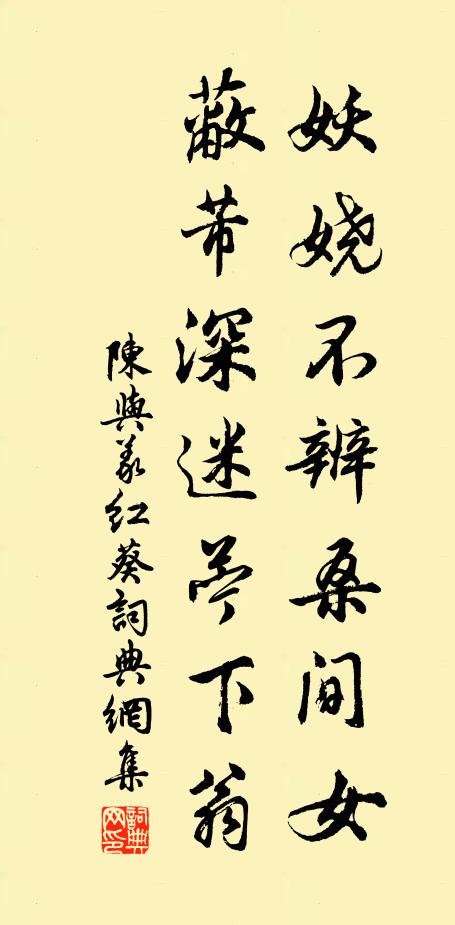 妖娆不辨桑间女
蔽芾深迷苎下翁
陳與義紅葵詞典網集
詞典网印